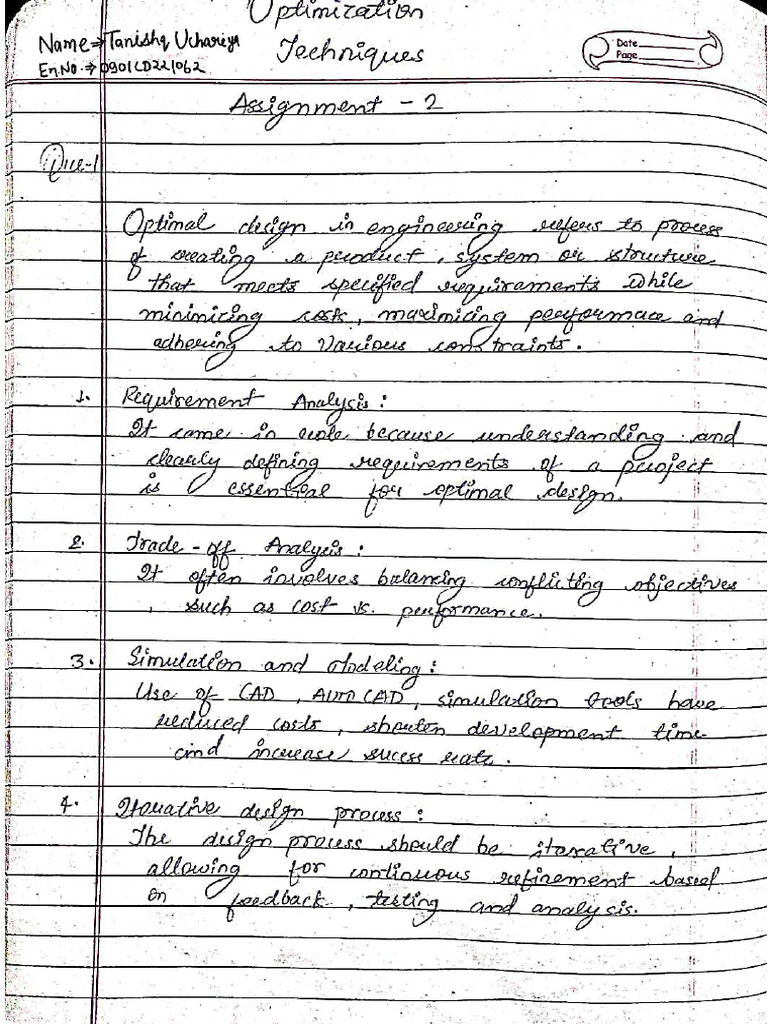 Optimization
Techniques
Name⇒Tanishq Uchareya
En.No.⇒0901CD221062
Date
Page
Assignment - 2
Que-1
Optimal design in engineering refers to process
of creating a product, system or structure
that meets specified requirements while
minimizing costs, maximizing performace and
adhering to various constraints.
1. Requirement Analysis:
It come in role because understanding and
clearly defining requirements of a project
is essential for optimal design.
2. Trade-off Analysis:
It often involves balancing conflicting objectives
, such as cost vs. performance.
3. Simulation and Modeling:
Use of CAD, AUTOCAD, simulation tools have
reduced costs, shorten development time
and increase sucess rate.
4. Iterative design process:
The design process should be iterative,
allowing for continuous refinement based
on feedback, testing and analysis.